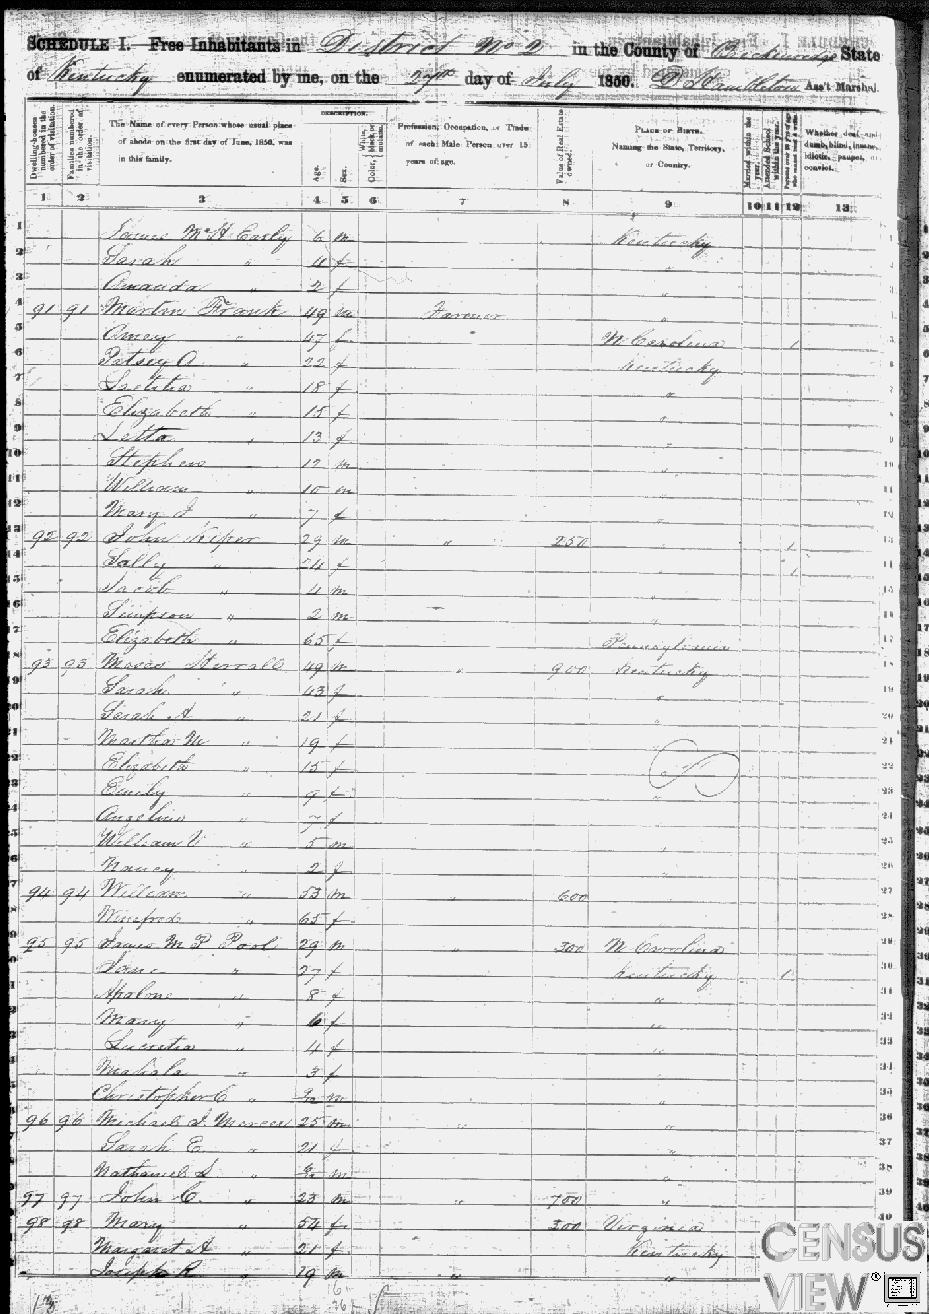 SCHEDULE I. Free Inhabitants in District No 2 in the County of Breckenridge State
of Kentucky enumerated by me, on the 27th day of July 1850. Ass't Marshal.
Dwelling-houses numbered in the order of visitation.
Families numbered in the order of visitation.
The Name of every Person whose usual place of abode on the first day of June, 1850, was in this family.
DESCRIPTION.
Age.
Sex.
Color, White, black, or mulatto.
Profession, Occupation, or Trade of each Male Person over 15 years of age.
Value of Real Estate owned.
PLACE OF BIRTH. Naming the State, Territory, or Country.
Married within the year.
Attended School within the year.
Persons over 20 y'rs of age who cannot read & write.
Whether deaf and dumb, blind, insane, idiotic, pauper, or convict.
1 2 3 4 5 6 7 8 9 10 11 12 13
1 James McH Early 6 m Kentucky
2 Sarah " 4 f "
3 Amanda " 2 f "
4 91 91 Martin Frank 49 m Farmer "
5 Amey " 47 f N Carolina 1
6 Patsey A " 22 f Kentucky
7 Laetitia " 18 f "
8 Elizabeth " 15 f "
9 Letta " 13 f "
10 Stephen 12 m "
11 William " 10 m "
12 Mary J " 7 f "
13 92 92 John Kiper 29 m " 250 " 1
14 Sally " 24 f " 1
15 Jacob " 4 m "
16 Simpson " 2 m "
17 Elizabeth " 65 f Pennsylvania
18 93 93 Moses Merrall 49 m " 900 Kentucky
19 Sarah " 43 f "
20 Sarah A " 21 f "
21 Martha M " 19 f "
22 Elizabeth " 15 f
23 Emily " 9 f "
24 Angeline " 7 f
25 William V " 5 m "
26 Nancy " 2 f "
27 94 94 William " 53 m " 600
28 Winifred " 65 f "
29 95 95 James M P Pool 29 m " 300 N Carolina
30 Jane " 27 f Kentucky 1
31 " 8 f "
32 Mary " 6 f "
33 Lucretia " 4 f "
34 Mahala " 3 f "
35 Christopher C " m "
36 96 96 Michael J 25 m " "
37 Sarah E " 21 f "
38 Nathaniel S " m "
39 97 97 John C. " 23 m " 700 "
40 98 98 Mary " 54 f 300 Virginia
Margaret A " 21 f Kentucky
Joseph R " 19 m " "
CENSUS
VIEW®